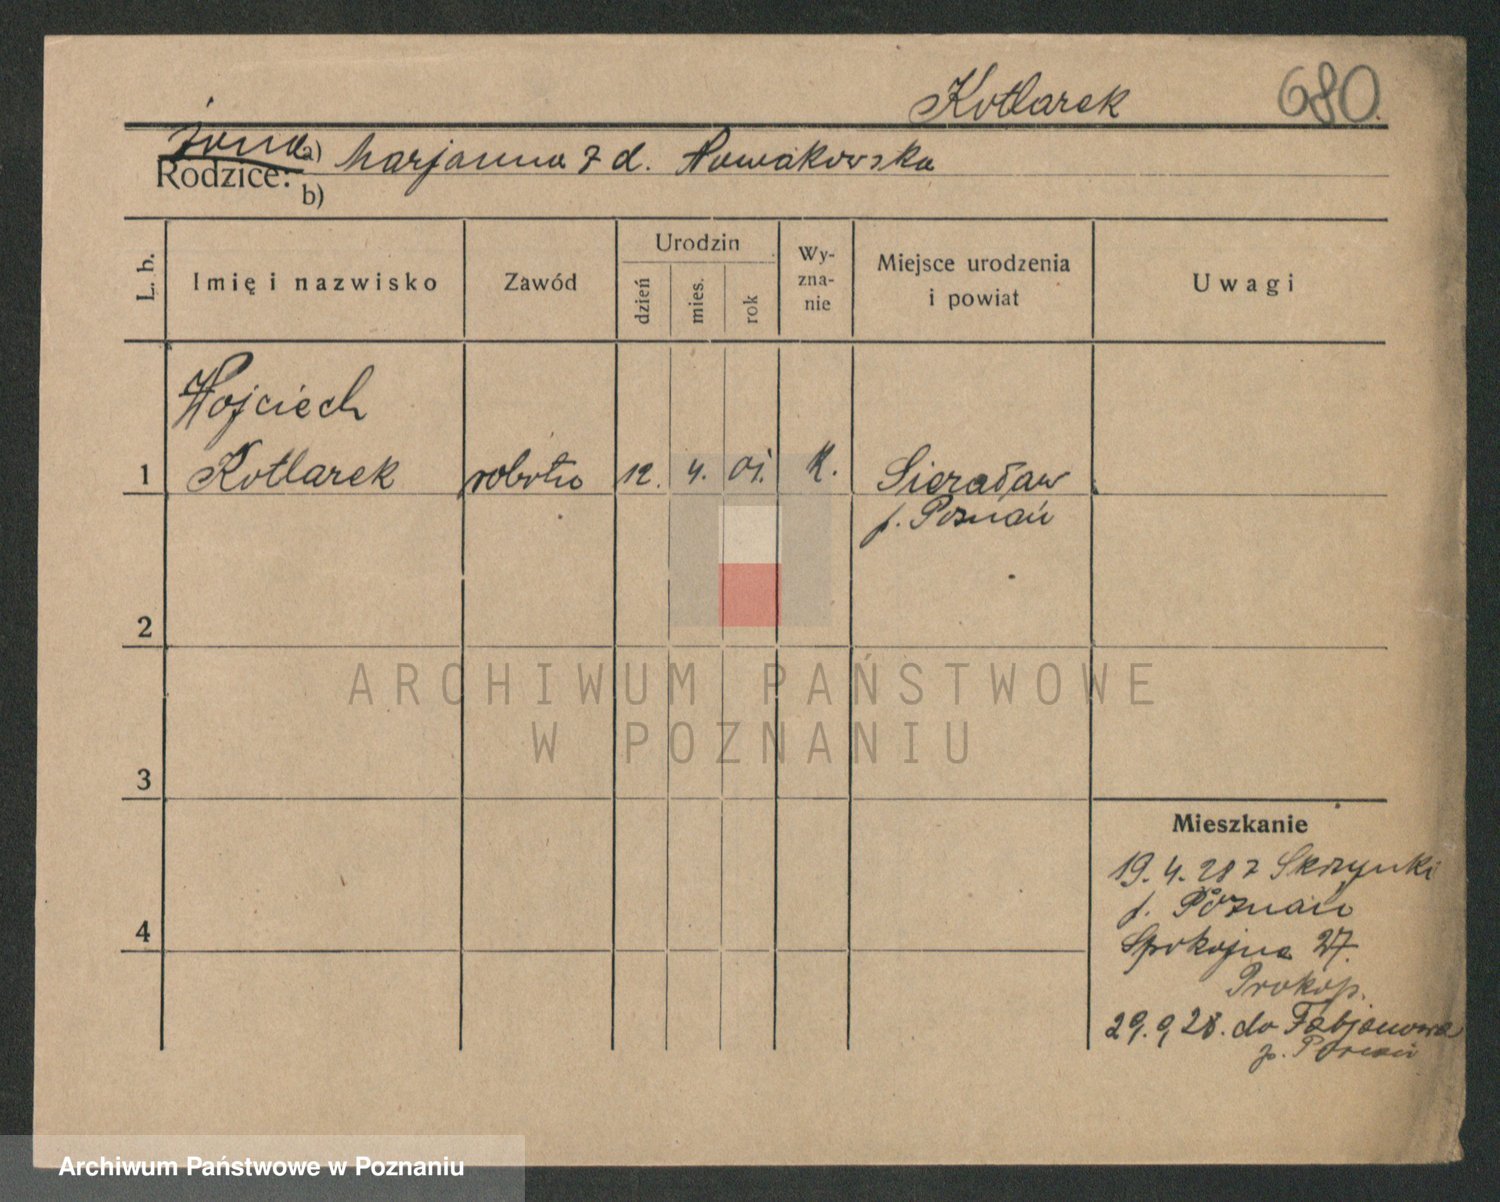 Kotlarek 680.
żona
Rodzice: a) Marjanna z d. Nowakowska
b)
L. b. Imię i nazwisko Zawód Urodzin dzień mies. rok Wy-zna-nie Miejsce urodzenia i powiat Uwagi
Wojciech
1 Kotlarek robotn 12. 4. 01. K. Sierosław
p. Poznań
2
ARCHIWUM PAŃSTWOWE
W POZNANIU
3
Mieszkanie
19. 4. 28 z Skrzynki
p. Poznań
4
Spokojna 27.
Prokop.
29. 9 28. do Fabjanowa
p. Poznań
Archiwum Państwowe w Poznaniu